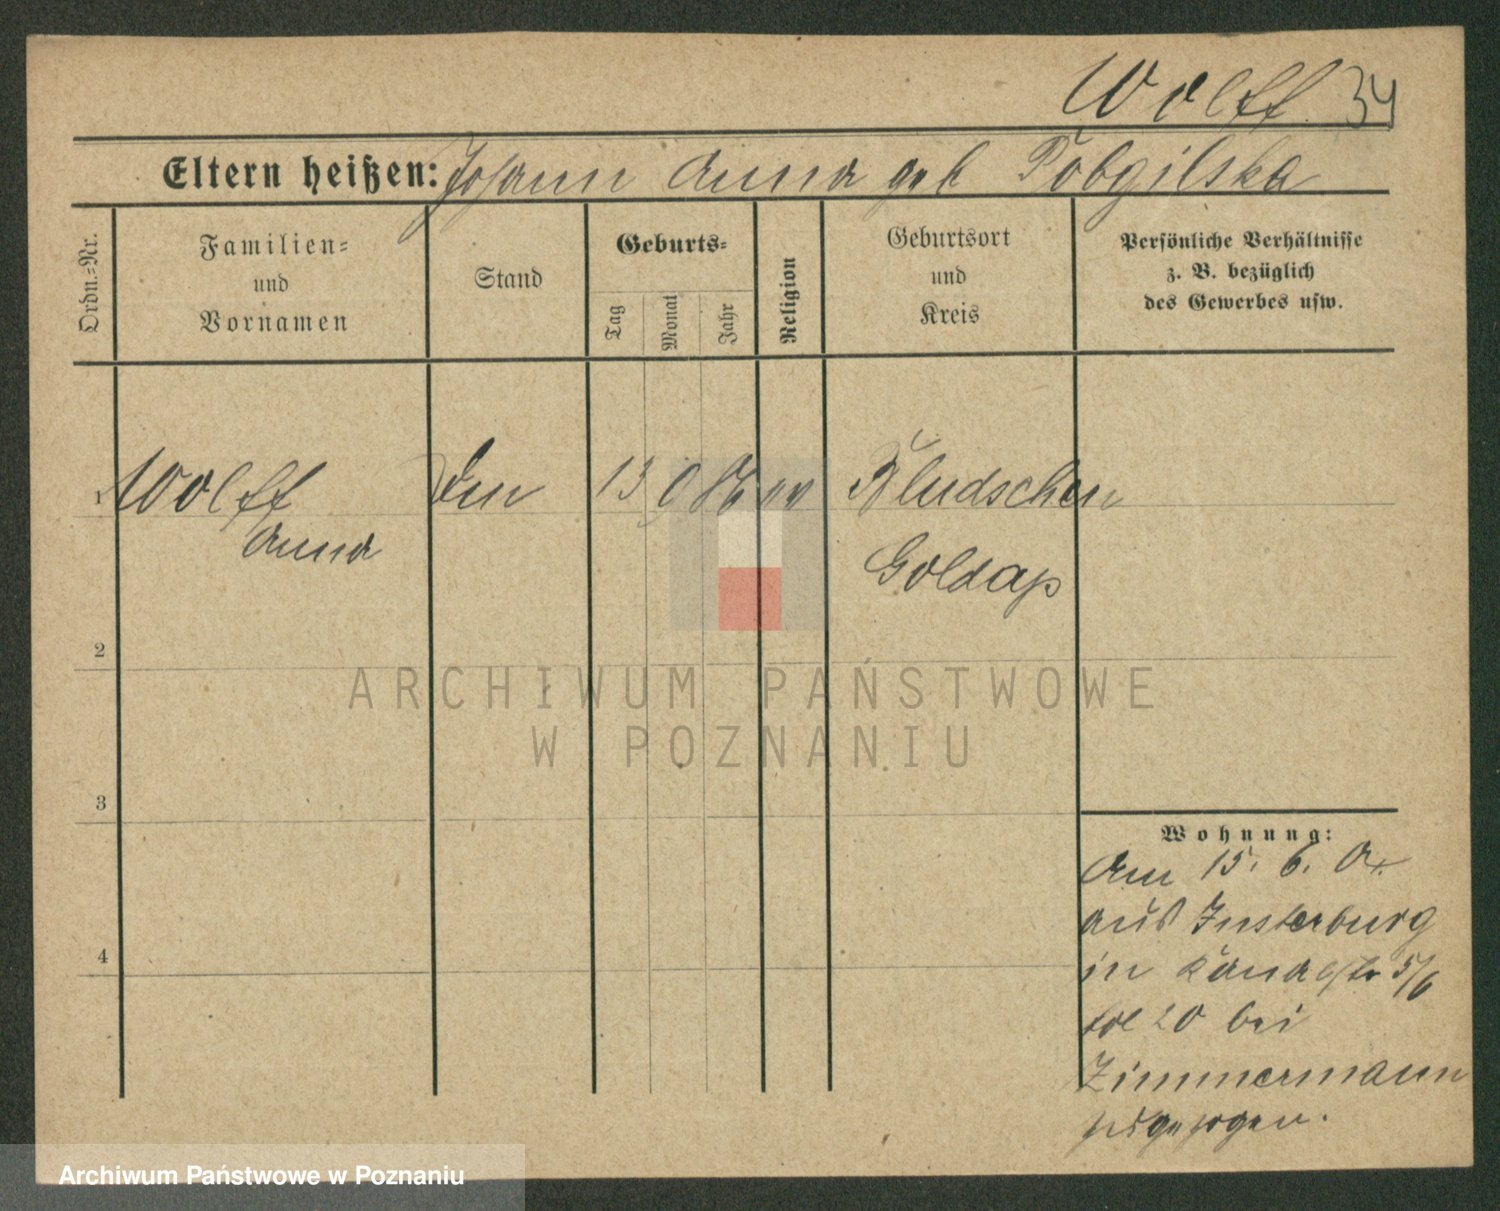 Wolff 34
Eltern heißen: Johann Anna geb
Ordn.=Nr.
Familien=
und
Vornamen
Stand
Geburts=
Tag
Monat
Jahr
Religion
Geburtsort
und
Kreis
Persönliche Verhältnisse
z. B. bezüglich
des Gewerbes usw.
1 Wolff 13 9 86 ev
Anna
Goldap
2
3
4
Wohnung:
Am 15. 6.
aus Insterburg
in 5/6
20 bei
Zimmermann
zugezogen.
ARCHIWUM PAŃSTWOWE
W POZNANIU
Archiwum Państwowe w Poznaniu